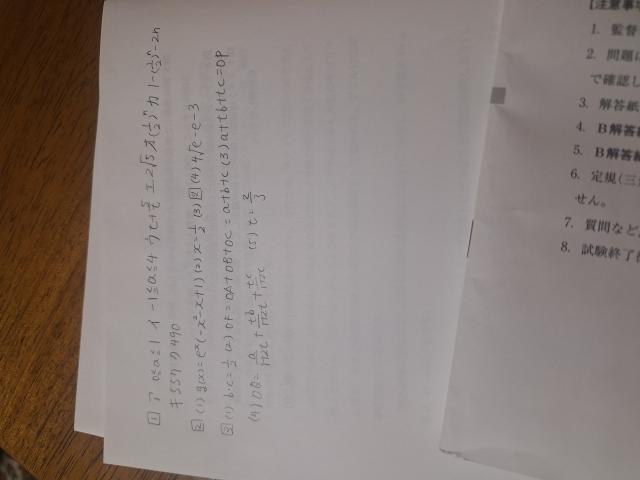 1 ア 0≤a≤1 イ -1≤a≤4 ウ t+5/t エ 2√5 オ (1/2)^n カ 1-(1/2)^n-2n
キ 557 ク 490
2 (1) g(x)=e^x(-x²-x+1) (2) x=1/2 (3) 図 (4) 4√e-e-3
3 (1) b·c=1/2 (2) OF=OA+OB+OC=a+b+c (3) a+tb+tc=OP
(4) OQ=a/1+2t+tb/1+2t+tc/1+2t (5) t=2/3
【注意事項
1. 監督
2. 問題に
で確認し
3. 解答紙
4. B解答紙
5. B解答紙
6. 定規(三
せん。
7. 質問など
8. 試験終了